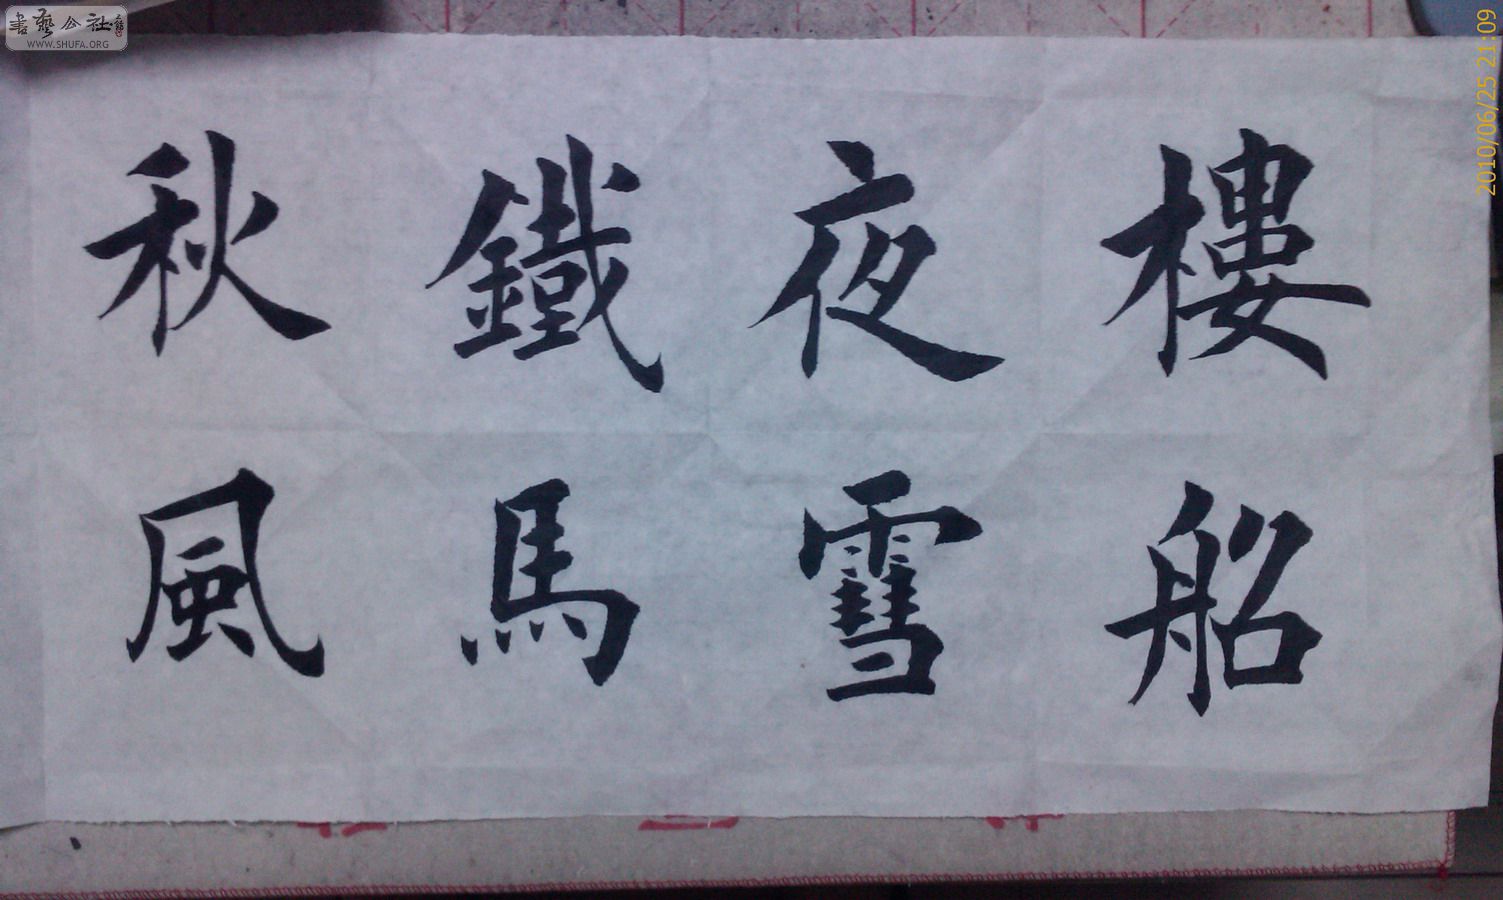 樓船
夜雪
鐵馬
秋風
書藝公社
WWW.SHUFA.ORG
2010/06/25 21:09